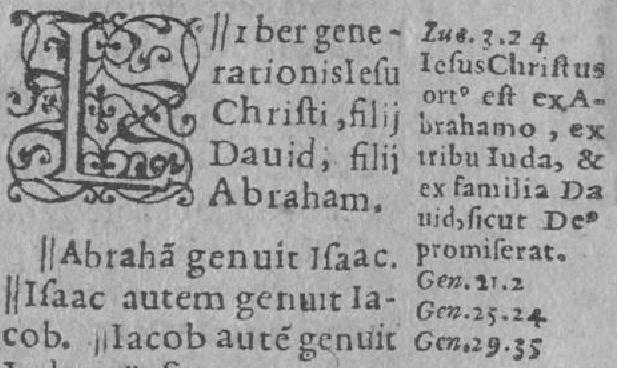 L ‖Iber gene-
rationis Iesu
Christi, filij
Dauid, filij
Abraham.
‖Abrahã genuit Isaac.
‖Isaac autem genuit Ia-
cob. ‖Iacob autẽ genuit
Luc. 3.24
Iesus Christus
ortꝰ est ex A-
brahamo, ex
tribu Iuda, &
ex familia Da
uid, sicut Deꝰ
promiserat.
Gen. 21.2
Gen. 25.24
Gen. 29.35